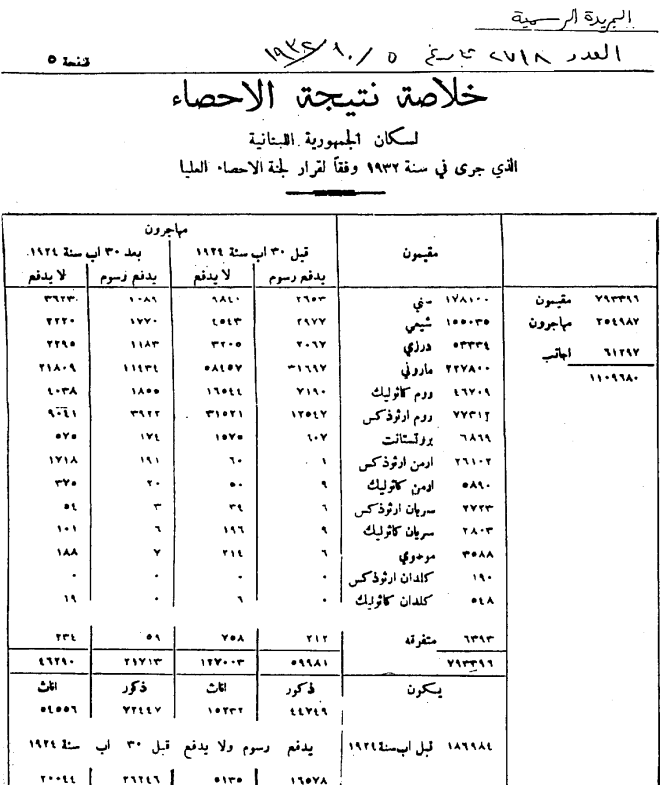 الجريدة الرسمية
العدد ٢٧١٨ تاريخ ٥ /١٠/ ١٩٣٢
صفحة ٥
خلاصة نتيجة الاحصاء
لسكان الجمهورية اللبنانية
الذي جرى في سنة ١٩٣٢ وفقاً لقرار لجنة الاحصاء العليا
مقيمون مهاجرون
قبل ٣٠ اب سنة ١٩٢٤ بعد ٣٠ اب سنة ١٩٢٤
يدفع رسوم لا يدفع يدفع رسوم لا يدفع
٧٩٣٣٩٦ مقيمون
٢٥٤٩٨٧ مهاجرون
٦١٢٩٧ اجانب
١١٠٩٦٨٠
١٧٨١٠٠ سني ٢٦٥٣ ٩٨٤٠ ١٠٨٩ ٣٦٢٣
١٥٥٠٣٥ شيعي ٢٩٧٧ ٤٥٤٣ ١٧٧٠ ٢٢٢٠
٥٣٣٣٤ درزي ٢٠٦٧ ٣٢٠٥ ١١٨٣ ٢٢٩٥
٢٢٧٨٠٠ ماروني ٣١٦٩٧ ٥٨٤٥٧ ١١٤٣٤ ٢١٨٠٩
٤٦٧٠٩ روم كاثوليك ٧١٩٠ ١٦٥٤٤ ١٨٥٥ ٤٠٣٨
٧٧٣١٢ روم ارثوذكس ١٢٥٤٧ ٣١٥٢١ ٣٩٢٢ ٩٠٤١
٦٨٦٩ بروتستانت ٦٠٧ ١٥٧٥ ١٧٤ ٥٧٥
٢٦١٠٢ ارمن ارثوذكس ١ ٦٠ ١٩١ ١٧١٨
٥٨٩٠ ارمن كاثوليك ٩ ٥٠ ٢٠ ٣٧٥
٢٧٢٣ سريان ارثوذكس ٦ ٣٤ ٣ ٥٤
٢٨٠٣ سريان كاثوليك ٩ ١٩٦ ٦ ١٠١
٣٥٨٨ موسوي ٦ ٢١٤ ٧ ١٨٨
١٩٠ كلدان ارثوذكس ٠ ٠ ٠ ٠
٥٤٨ كلدان كاثوليك ٠ ٦ ٠ ١٩
٦٣٩٣ متفرقه ٢١٢ ٧٥٨ ٥٩ ٢٣٤
٧٩٣٣٩٦ ٥٩٩٨١ ١٢٧٠٠٣ ٢١٧١٣ ٤٦٢٩٠
يكون ذكور اناث ذكور اناث
٤٤٧٤٩ ١٥٢٣٢ ٧٢٤٤٧ ٥٤٥٥٦
١٨٦٩٨٤ قبل اب سنة ١٩٢٤ يدفع رسوم ولا يدفع قبل ٣٠ اب سنة ١٩٢٤
١٦٥٧٨ ٥١٣٥ ٢٦٢٤٦ ٢٠٠٤٤